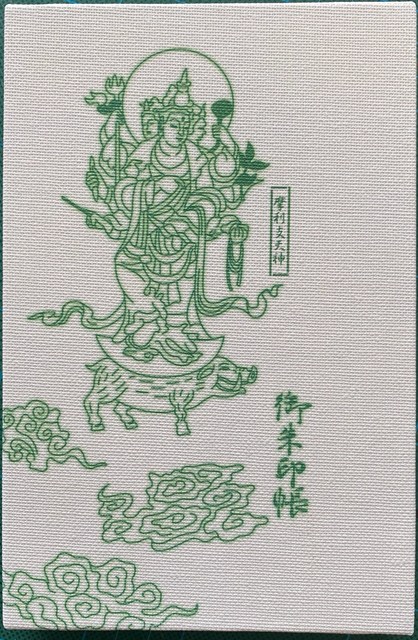 摩利支天神
御朱印帳